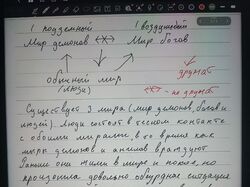 1 подземный 1 воздушный
Мир демонов Мир богов
Обычный мир
(люди)
дружат
- не дружат
Существует 3 мира (мир демонов, богов и
людей) Люди состоят в тесном контакте
с обоими мирами, в то время как
миры демонов и ангелов враждуют
Раньше они жили в мире и покое, но
произошла довольно обыденная ситуация